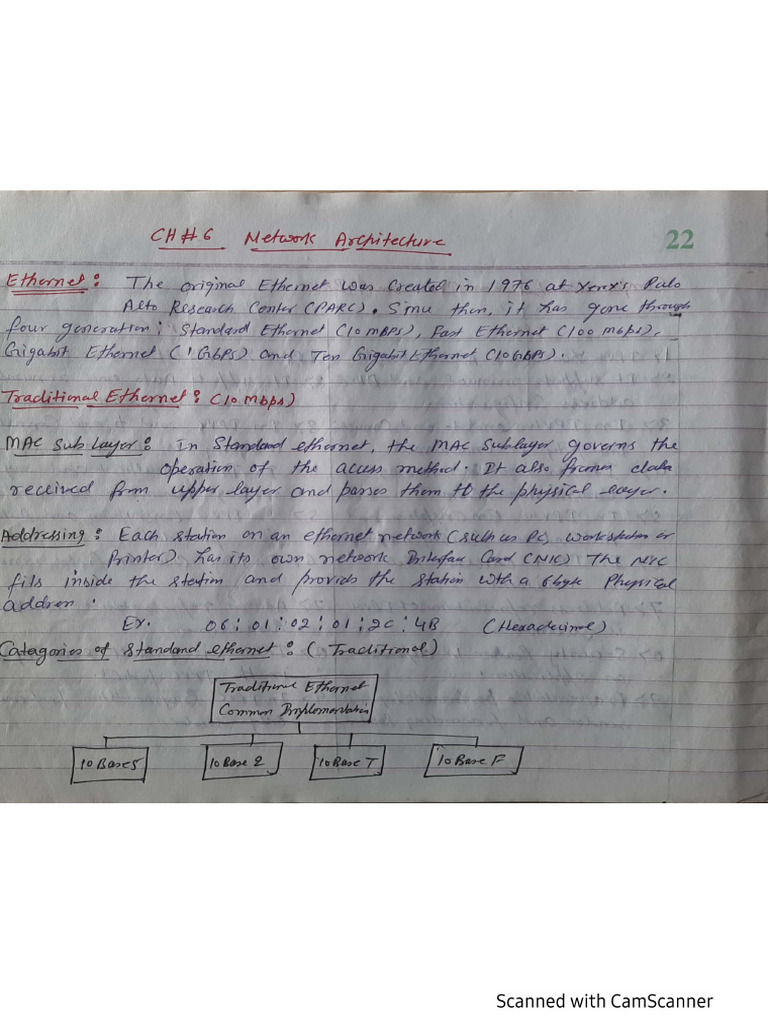 CH#6 Network Architecture
22
Ethernet: The original Ethernet was created in 1976 at Xerox's Palo
Alto Research Center (PARC). Since then, it has gone through
four generation: Standard Ethernet (10 mbps), Fast Ethernet (100 mbps),
Gigabit Ethernet (1 Gbps) and Ten Gigabit Ethernet (10 Gbps).
Traditional Ethernet: (10 Mbps)
MAC Sub Layer: In Standard ethernet, the MAC Sublayer governs the
operation of the access method. It also frames data
received from upper layer and passes them to the physical layer.
Addressing: Each station on an ethernet network (such as PC, workstation or
Printer) has its own network Interface Card (NIC) The NIC
fits inside the station and provids the station with a 6 byte Physical
address.
Ex. 06:01:02:01:2C:4B (Hexadecimal)
Catagories of Standard ethernet: (Traditional)
Traditional Ethernet
Common Implementation
10 Base 5
10 Base 2
10 Base T
10 Base F
Scanned with CamScanner